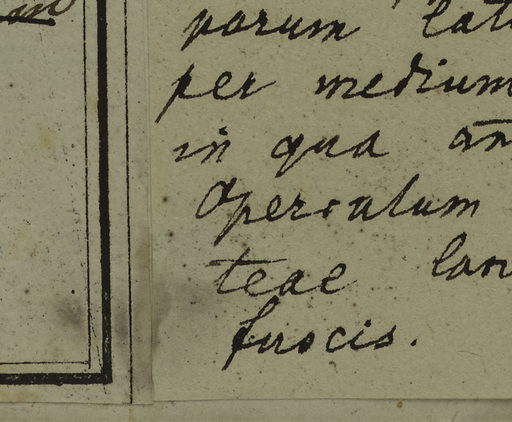 parum lat
per medium
in qua an
Operculum
teae lan
fuscis.